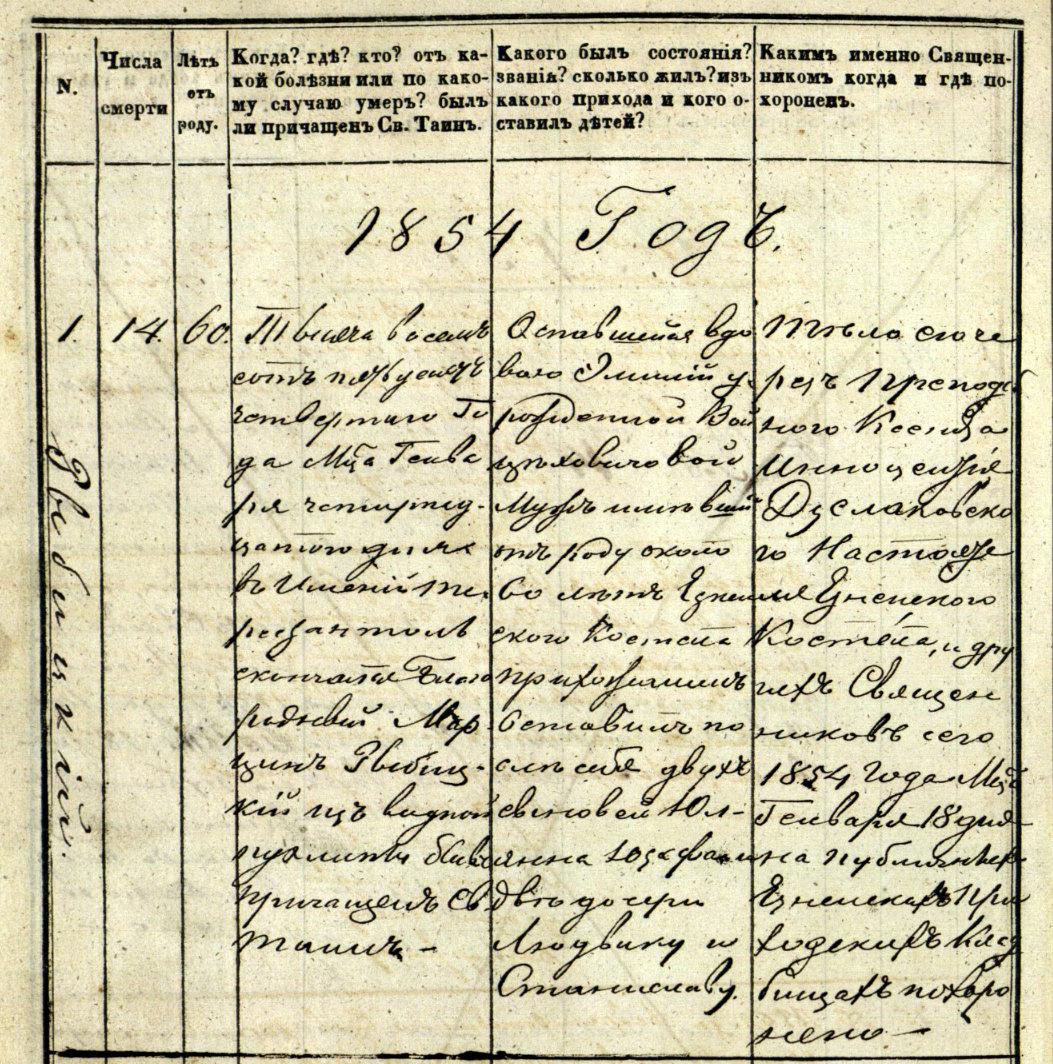 N.
Числа
смерти
Лѣтъ
отъ
роду.
Когда? гдѣ? кто? отъ ка-
кой болѣзни или по како-
му случаю умеръ? былъ
ли причащенъ Св. Таинъ.
Какого былъ состоянія?
званія? сколько жилъ? изъ
какого прихода и кого о-
ставилъ дѣтей?
Какимъ именно Священ-
никомъ когда и гдѣ по-
хороненъ.
1854 Годъ.
Рыбицкій.
1.
14.
60.
Тысяча восемъ
сотъ пятьдесятъ
четвертаго Го
да Мца Генва
ря четырнад-
цатого дня
въ Имѣніи
скончался Благо
родный Мар-
цинъ Рыбиц-
кій изъ водной
пухлины бывъ
причащенъ Св
таинъ –
Оставшейся вдо
вою Эмиліи у-
рожденной Вой
цѣховичовой
Мужъ имѣвшій
отъ роду около
60 лѣтъ Езнен
ского Костела
прихожанинъ
Оставилъ по
слѣ себя двухъ
сыновей Юл-
двѣ дочери
Людвику и
Станиславу.
Тѣло сіо че
резъ Преподоб
ного Ксендза
Иннощентія
го Настояте
ля Езненского
Костела, и дру
гихъ Священ
никовъ сего
1854 Года Мца
Генваря 18 дня
на публичныхъ
Езненскихъ При
ходскихъ Клад
бищахъ похоро
нено –